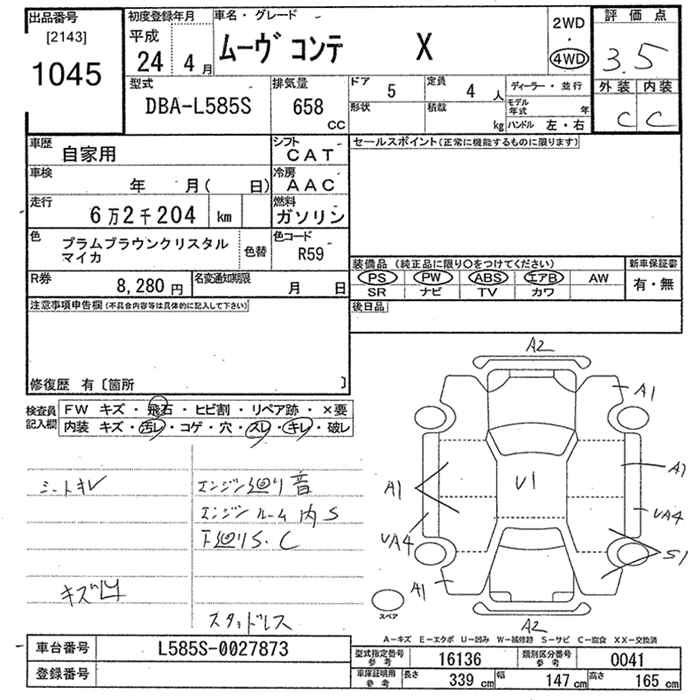 出品番号
[2143]
1045
初度登録年月
平成
24 4月
車名・グレード
ムーヴ コンテ X
2WD
・
4WD
評価点
3.5
外装 内装
C C
型式
DBA-L585S
排気量
658
CC
ドア 5
定員 4 人
形状
積載 kg
ディーラー・並行
モデル年式 年
ハンドル 左・右
車歴
自家用
シフト
CAT
車検
年 月( 日)
冷房
AAC
走行
6万2千204 km
燃料
ガソリン
色
プラムブラウンクリスタル
マイカ
色替
色コード
R59
R券
8,280 円
名変通知期限
月 日
セールスポイント(正常に機能するものに限ります)
装備品 (純正品に限り○をつけてください)
PS PW ABS エアB AW
SR ナビ TV カワ
新車保証書
有・無
後日品
注意事項申告欄 (不具合内容等は具体的に記入して下さい)
修復歴 有〔箇所 〕
検査員
記入欄
FW キズ・飛石・ヒビ割・リペア跡・×要
内装 キズ・汚レ・コゲ・穴・スレ・キレ・破レ
シートキレ
エンジン廻り音
エンジンルーム内S
下廻りS.C
キズ凹
スタッドレス
A2
A1
A1
A1
U1
UA4
UA4
S1
A1
A2
スペア
A－キズ E－エクボ U－凹み W－補修跡 S－サビ C－腐食 XX－交換済
車台番号
L585S-0027873
登録番号
型式指定番号
参考
16136
類別区分番号
参考
0041
車庫証明用
参考
長さ 339 cm
幅 147 cm
高さ 165 cm